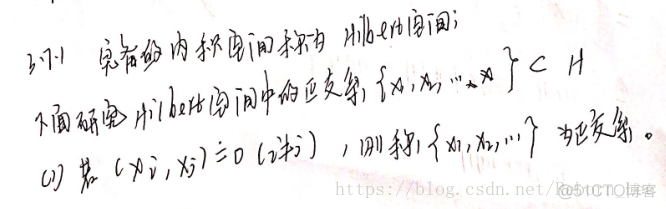 3.7.1 完备的内积空间称为 Hilbert空间;
下面研究 Hilbert空间中的正交系 {x₁, x₂, ..., x } ⊂ H
(1) 若 (xi, xj) = 0 (i≠j), 则称 {x₁, x₂, ...} 为正交系。
https://blog.csdn.net/
@51CTO博客